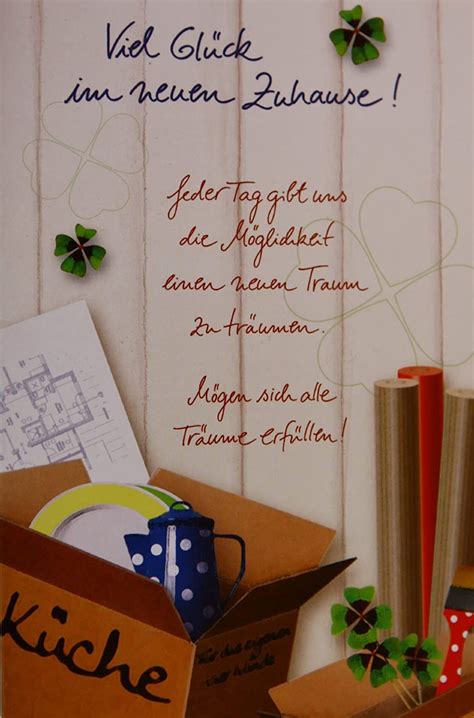 Viel Glück
im neuen Zuhause!
Jeder Tag gibt uns
die Möglichkeit
einen neuen Traum
zu träumen.
Mögen sich alle
Träume erfüllen!
Küche
Für die eigenen
vier Wände